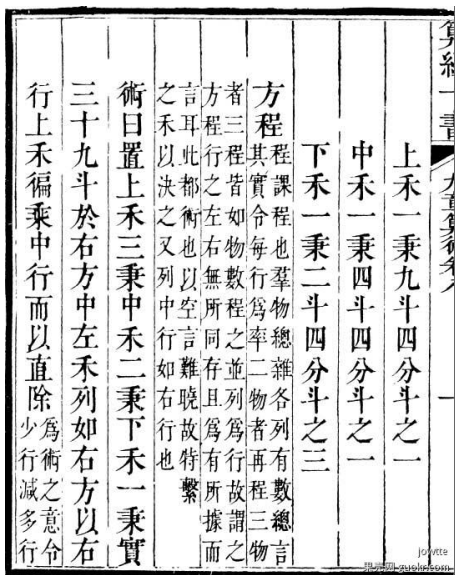 算經十書 九章算術卷八 一
上禾一秉九斗四分斗之一
中禾一秉四斗四分斗之一
下禾一秉二斗四分斗之三
方程
程課程也羣物總雜各列有數總言
其實令每行爲率二物者再程三物
者三程皆如物數程之並列爲行故謂之
方程行之左右無所同存且爲有所據而
言耳此都術也以空言難曉故特繫
之禾以決之又列中行如右行也
術曰置上禾三秉中禾二秉下禾一秉實
三十九斗於右方中左禾列如右方以右
行上禾徧乘中行而以直除
爲術之意令
少行減多行
jowtte
guokr.com